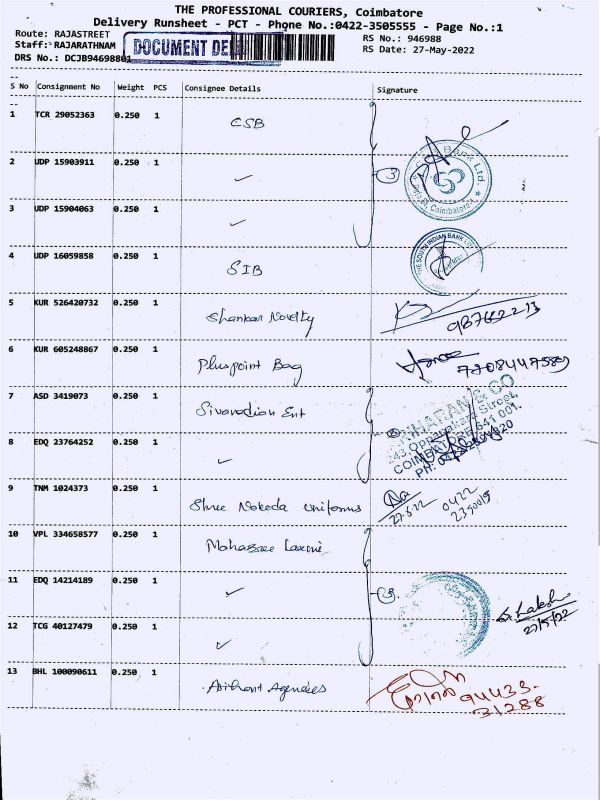 THE PROFESSIONAL COURIERS, Coimbatore
Delivery Runsheet - PCT - Phone No.:0422-3505555 - Page No.:1
Route: RAJASTREET RS No.: 946988
Staff: RAJARATHNAM DOCUMENT DE RS Date: 27-May-2022
DRS No.: DCJB94698801
S No Consignment No Weight PCS Consignee Details Signature
1 TCR 29052363 0.250 1 CSB
Bank Ltd.
2 UDP 15903911 0.250 1 ✓ 3
Coimbatore
3 UDP 15904063 0.250 1 ✓
4 UDP 16059858 0.250 1 SIB
THE SOUTH INDIAN BANK LTD
5 KUR 526420732 0.250 1 Shankar Novelty
6 KUR 605248867 0.250 1 Pluspoint Bag
7 ASD 3419073 0.250 1 Sivavadian Ent
HARAN & CO
8 EDQ 23764252 0.250 1 ✓
Street,
COIMBATORE 641 001.
9 TNM 1024373 0.250 1 Shree Nakoda Uniforms
27.5.22 0422
10 VPL 334658577 0.250 1
11 EDQ 14214189 0.250 1 ✓ 3
27/5/22
12 TCG 40127479 0.250 1 ✓
13 BHL 100090611 0.250 1 Arihant Agencies
94433-
31288